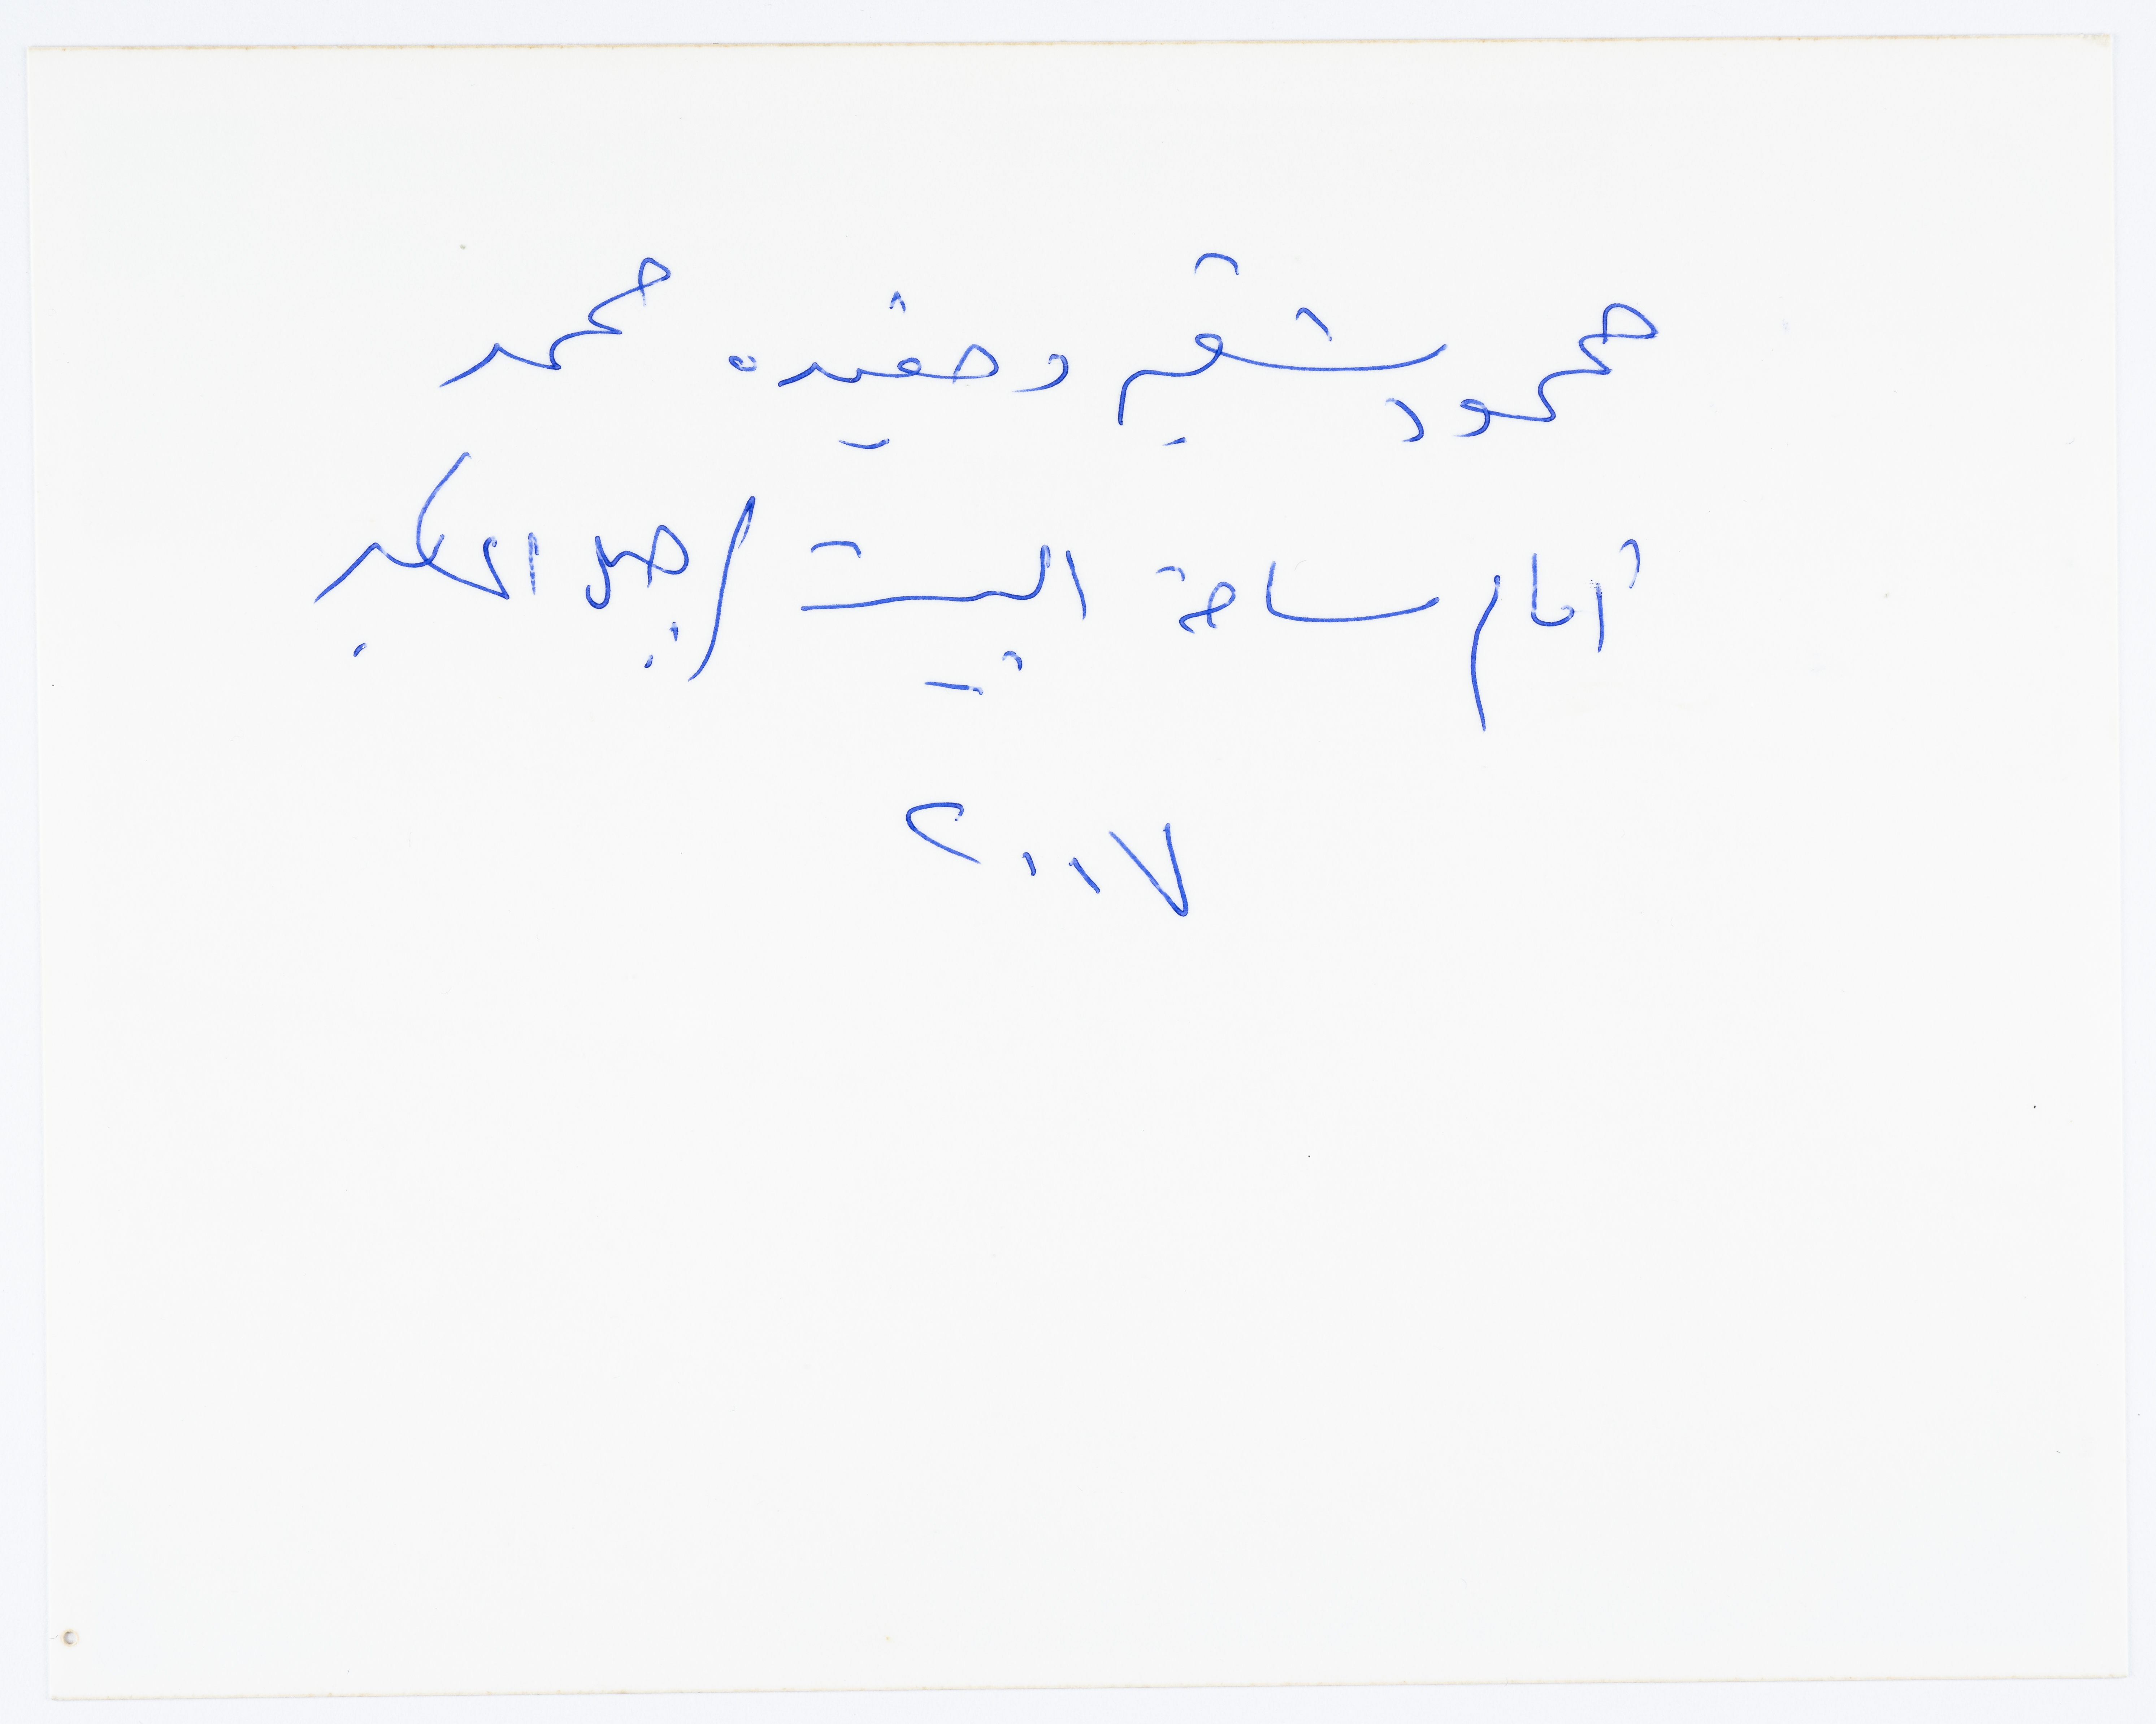 محمود شقير وحفيده محمد
أمام ساحة البيت / جبل المكبر
٢٠٠٧